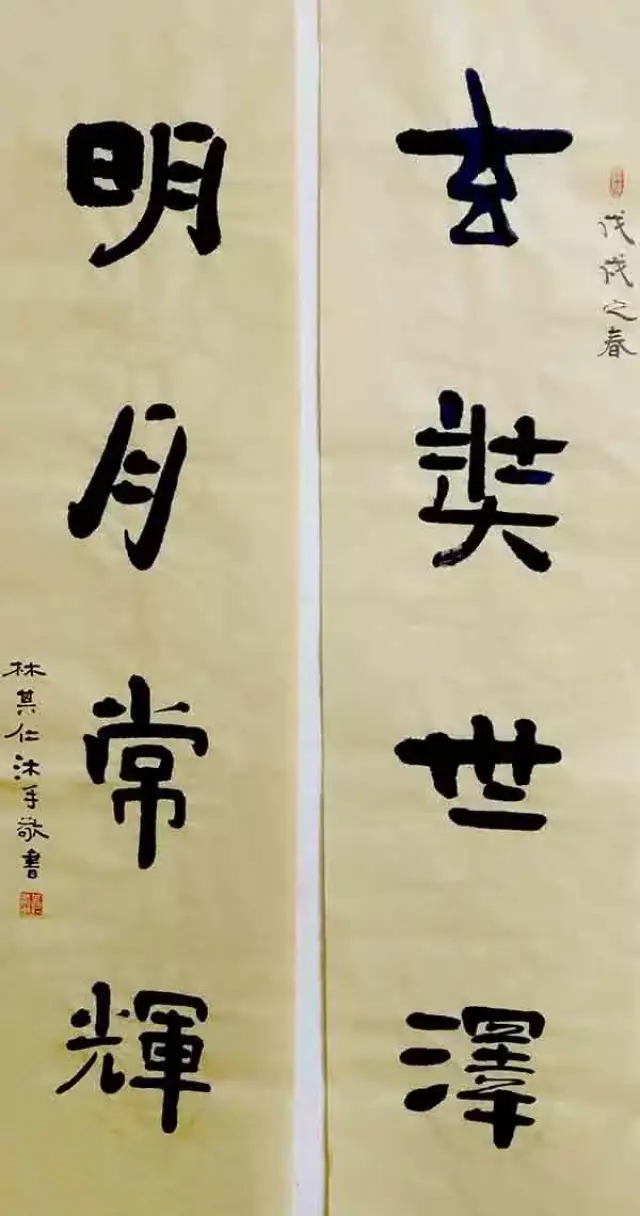 戊戌之春
玄奘世澤
明月常輝
林其仁沐手敬書